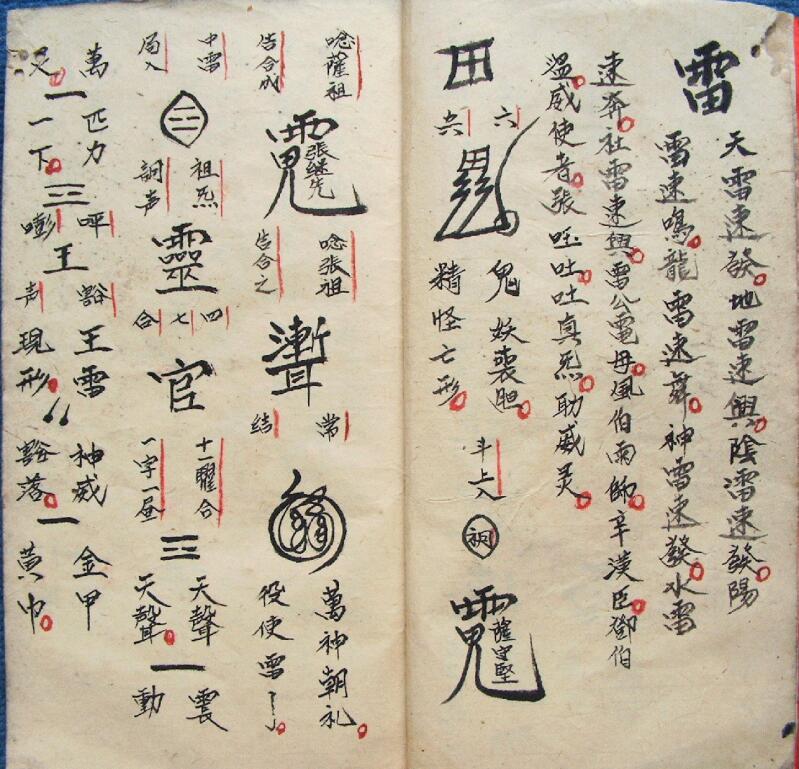 雷
天雷速發地雷速興陰雷速發陽
雷速鳴龍雷速舞神雷速發水雷
速奔社雷速興雷公電母風伯雨師辛漢臣鄧伯
溫威使者張呸吐吐真炁助威灵
六
鬼妖喪胆
精怪亡形
斗上入
薩守堅
唸薩祖
告合成
張继先
唸張祖
告合之
常
结
萬神朝礼
役使雷
中雷
局入
祖炁
詞声
靈
四
七
合
官
十一曜合
一字一昼
三
天聲
天聲
一
震
動
萬匹力
一
一下
三
呯
嘭
王
豁
声
王雷
現形
神威
豁落
一
金甲
黃巾